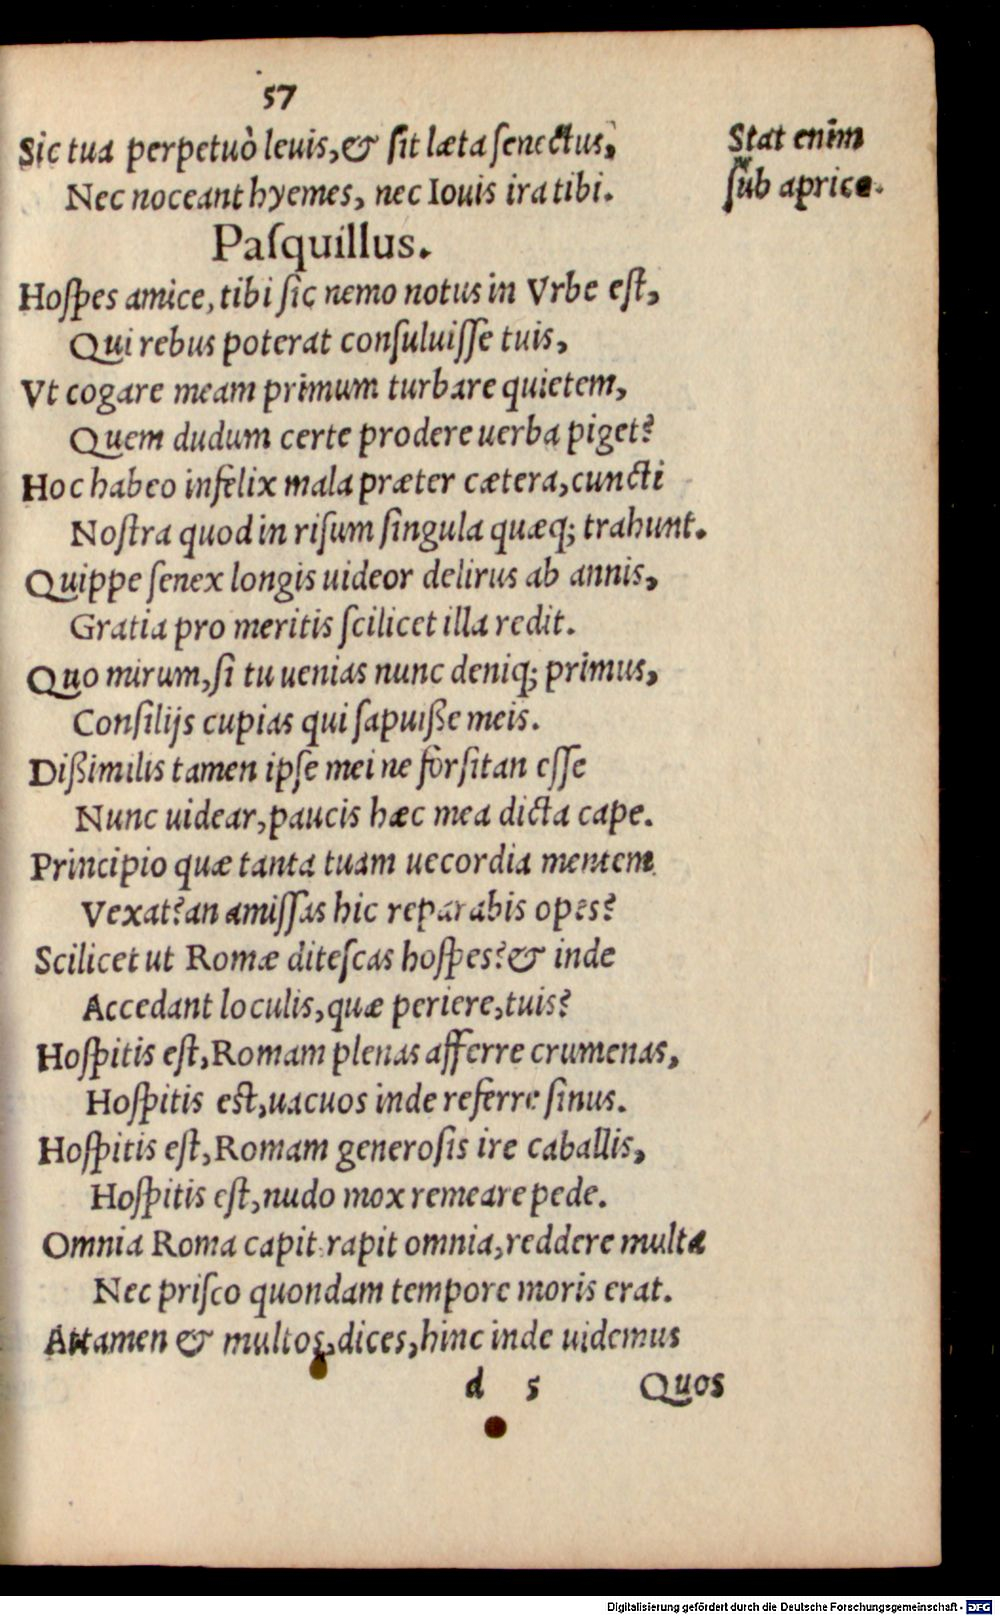 57
Sic tua perpetuò leuis, & sit læta senectus,
Nec noceant hyemes, nec Iouis ira tibi.
Stat enim
sub aprico.
Pasquillus.
Hospes amice, tibi sic nemo notus in Vrbe est,
Qui rebus poterat consuluisse tuis,
Vt cogare meam primum turbare quietem,
Quem dudum certe prodere uerba piget?
Hoc habeo infelix mala præter cætera, cuncti
Nostra quod in risum singula quæq; trahunt.
Quippe senex longis uideor delirus ab annis,
Gratia pro meritis scilicet illa redit.
Quo mirum, si tu uenias nunc deniq; primus,
Consilijs cupias qui sapuiße meis.
Dißimilis tamen ipse mei ne forsitan esse
Nunc uidear, paucis hæc mea dicta cape.
Principio quæ tanta tuam uecordia mentem
Vexat? an amissas hic reparabis opes?
Scilicet ut Romæ ditescas hospes? & inde
Accedant loculis, quæ periere, tuis?
Hospitis est, Romam plenas afferre crumenas,
Hospitis est, uacuos inde referre sinus.
Hospitis est, Romam generosis ire caballis,
Hospitis est, nudo mox remeare pede.
Omnia Roma capit, rapit omnia, reddere multa
Nec prisco quondam tempore moris erat.
Attamen & multos, dices, hinc inde uidemus
d 5 Quos
Digitalisierung gefördert durch die Deutsche Forschungsgemeinschaft - DFG